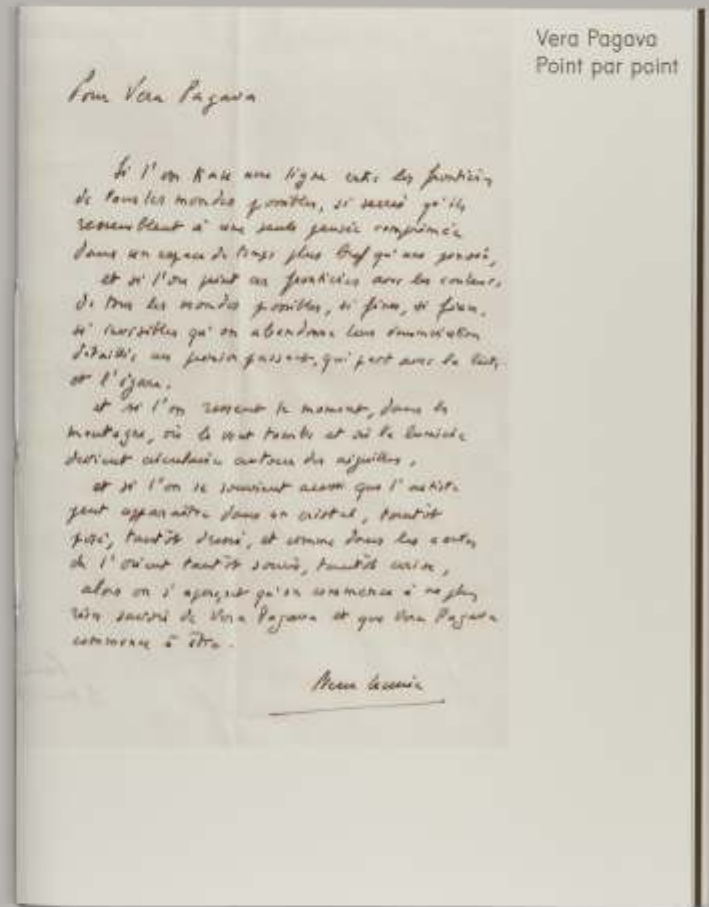 Vera Pagava
Point par point
Pour Vera Pagava
Si l'on trace une ligne entre les frontières
de tous les mondes possibles, si serrés qu'ils
ressemblent à une seule pensée comprimée
dans un espace de temps plus bref qu'une pensée,
et si l'on peint ces frontières avec les couleurs
de tous les mondes possibles, si fines, si fines,
si invisibles qu'on abandonne leur énumération
détaillée au premier passant, qui part avec la liste
et l'égare,
et si l'on ressent le moment, dans la
montagne, où le vent tombe et où la lumière
devient circulaire autour des aiguilles,
et si l'on se souvient aussi que l'artiste
peut apparaître dans un cristal, tantôt
posé, tantôt dressé, et comme dans les contes
de l'orient tantôt souris, tantôt cerise,
alors on s'aperçoit qu'on commence à ne plus
rien savoir de Vera Pagava et que Vera Pagava
commence à être.